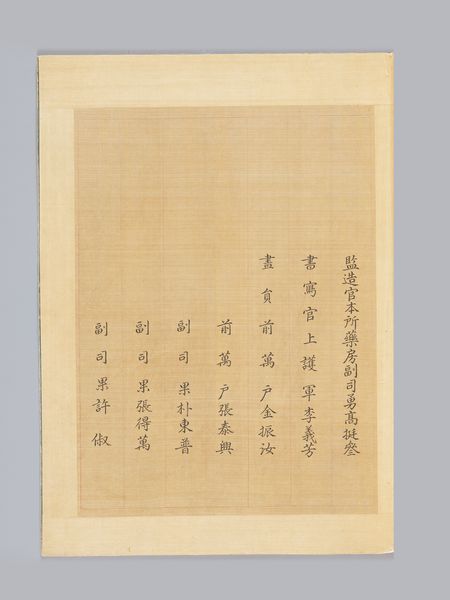 監造官本所藥房副司勇高挺參
書寫官上護軍李義芳
畫員前萬戶金振汝
前萬戶張泰興
副司果朴東普
副司果張得萬
副司果許俶